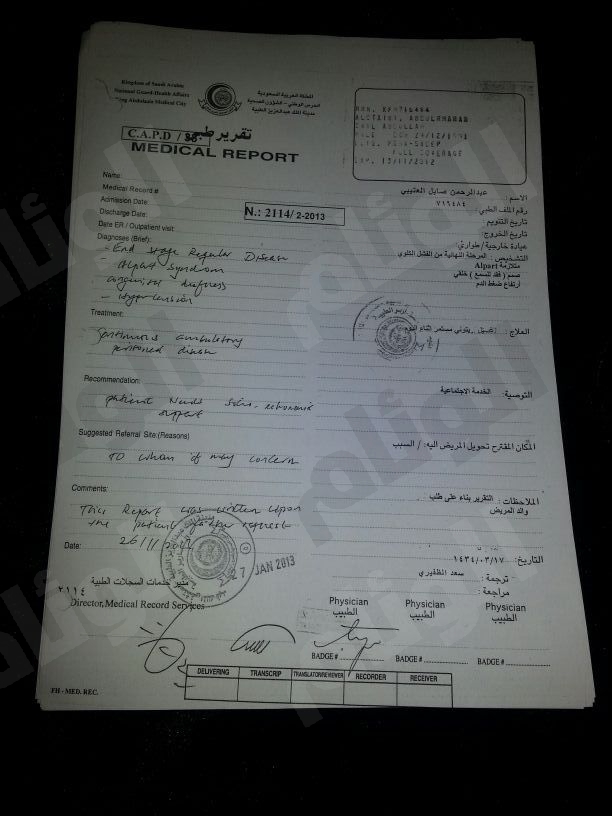 Kingdom of Saudi Arabia
National Guard-Health Affairs
King Abdulaziz Medical City
المملكة العربية السعودية
الحرس الوطني - الشؤون الصحية
مدينة الملك عبدالعزيز الطبية
C.A.P.D / تقرير طبي
MEDICAL REPORT
FULL COVERAGE
EXP. 13/11/2012
Name:
عبدالرحمن صايل العتيبي
الاسم :
Medical Record #
٧١٦٤٨٤
رقم الملف الطبي :
Admission Date:
N.: 2114/ 2-2013
تاريخ التنويم :
Discharge Date:
تاريخ الخروج :
Date ER / Outpatient visit:
عيادة خارجية / طوارئ :
Diagnoses (Brief):
التشخيص : المرحلة النهائية من الفشل الكلوي
- End stage Regular Disease
متلازمة Alpart
- Alpart Syndrom
صمم ( فقد للسمع ) خلقي
congenital deafness
ارتفاع ضغط الدم
- Hypertension
Treatment:
العلاج :
Continuous ambulatory
مستمر اثناء النوم
Recommendation:
التوصية : الخدمة الاجتماعية
patient Needs Socio-economic
support
Suggested Referral Site:(Reasons)
المكان المقترح تحويل المريض اليه: / السبب
TO whom it may concern
Comments:
الملاحظات : التقرير بناء على طلب
والد المريض
This Report was written upon
the patient father request
Date:
التاريخ : ١٤٣٤/٠٣/١٧
27 JAN 2013
ترجمة : سعد الظفيري
مراجعة :
٢١١٤ مدير خدمات السجلات الطبية
Director, Medical Record Services
Physician Physician Physician
الطبيب الطبيب الطبيب
BADGE # BADGE # BADGE #
DELIVERING TRANSCRIP TRANSLATOR/REVIEWER RECORDER RECEIVER
FH - MED. REC.